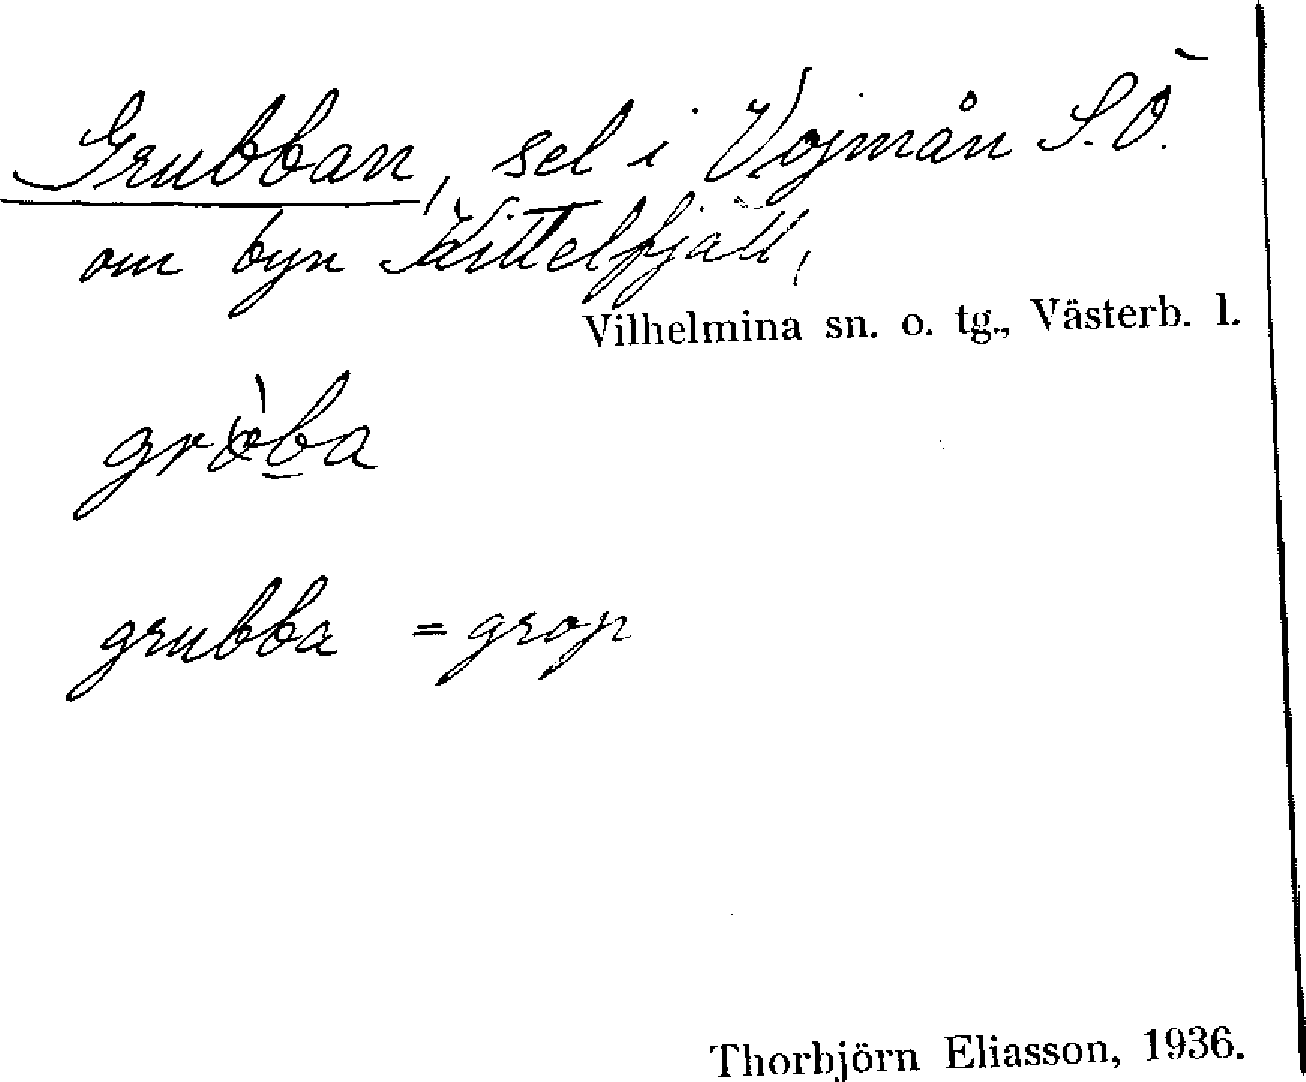 Grubban, sel i Vojmån S.Ö.
om byn Kittelfjäll,
Vilhelmina sn. o. tg., Västerb. l.
grubba = grop
Thorbjörn Eliasson, 1936.